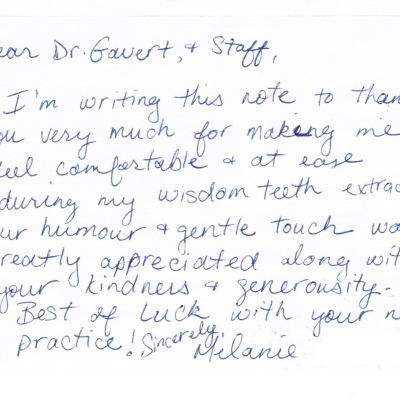 ear Dr. Gavert, & Staff,
I'm writing this note to than
ou very much for making me
eel comfortable & at ease
during my wisdom teeth extrac
ur humour & gentle touch wa
reatly appreciated along wit
your kindness & generousity.
Best of Luck with your n
practice! Sincerely,
Melanie